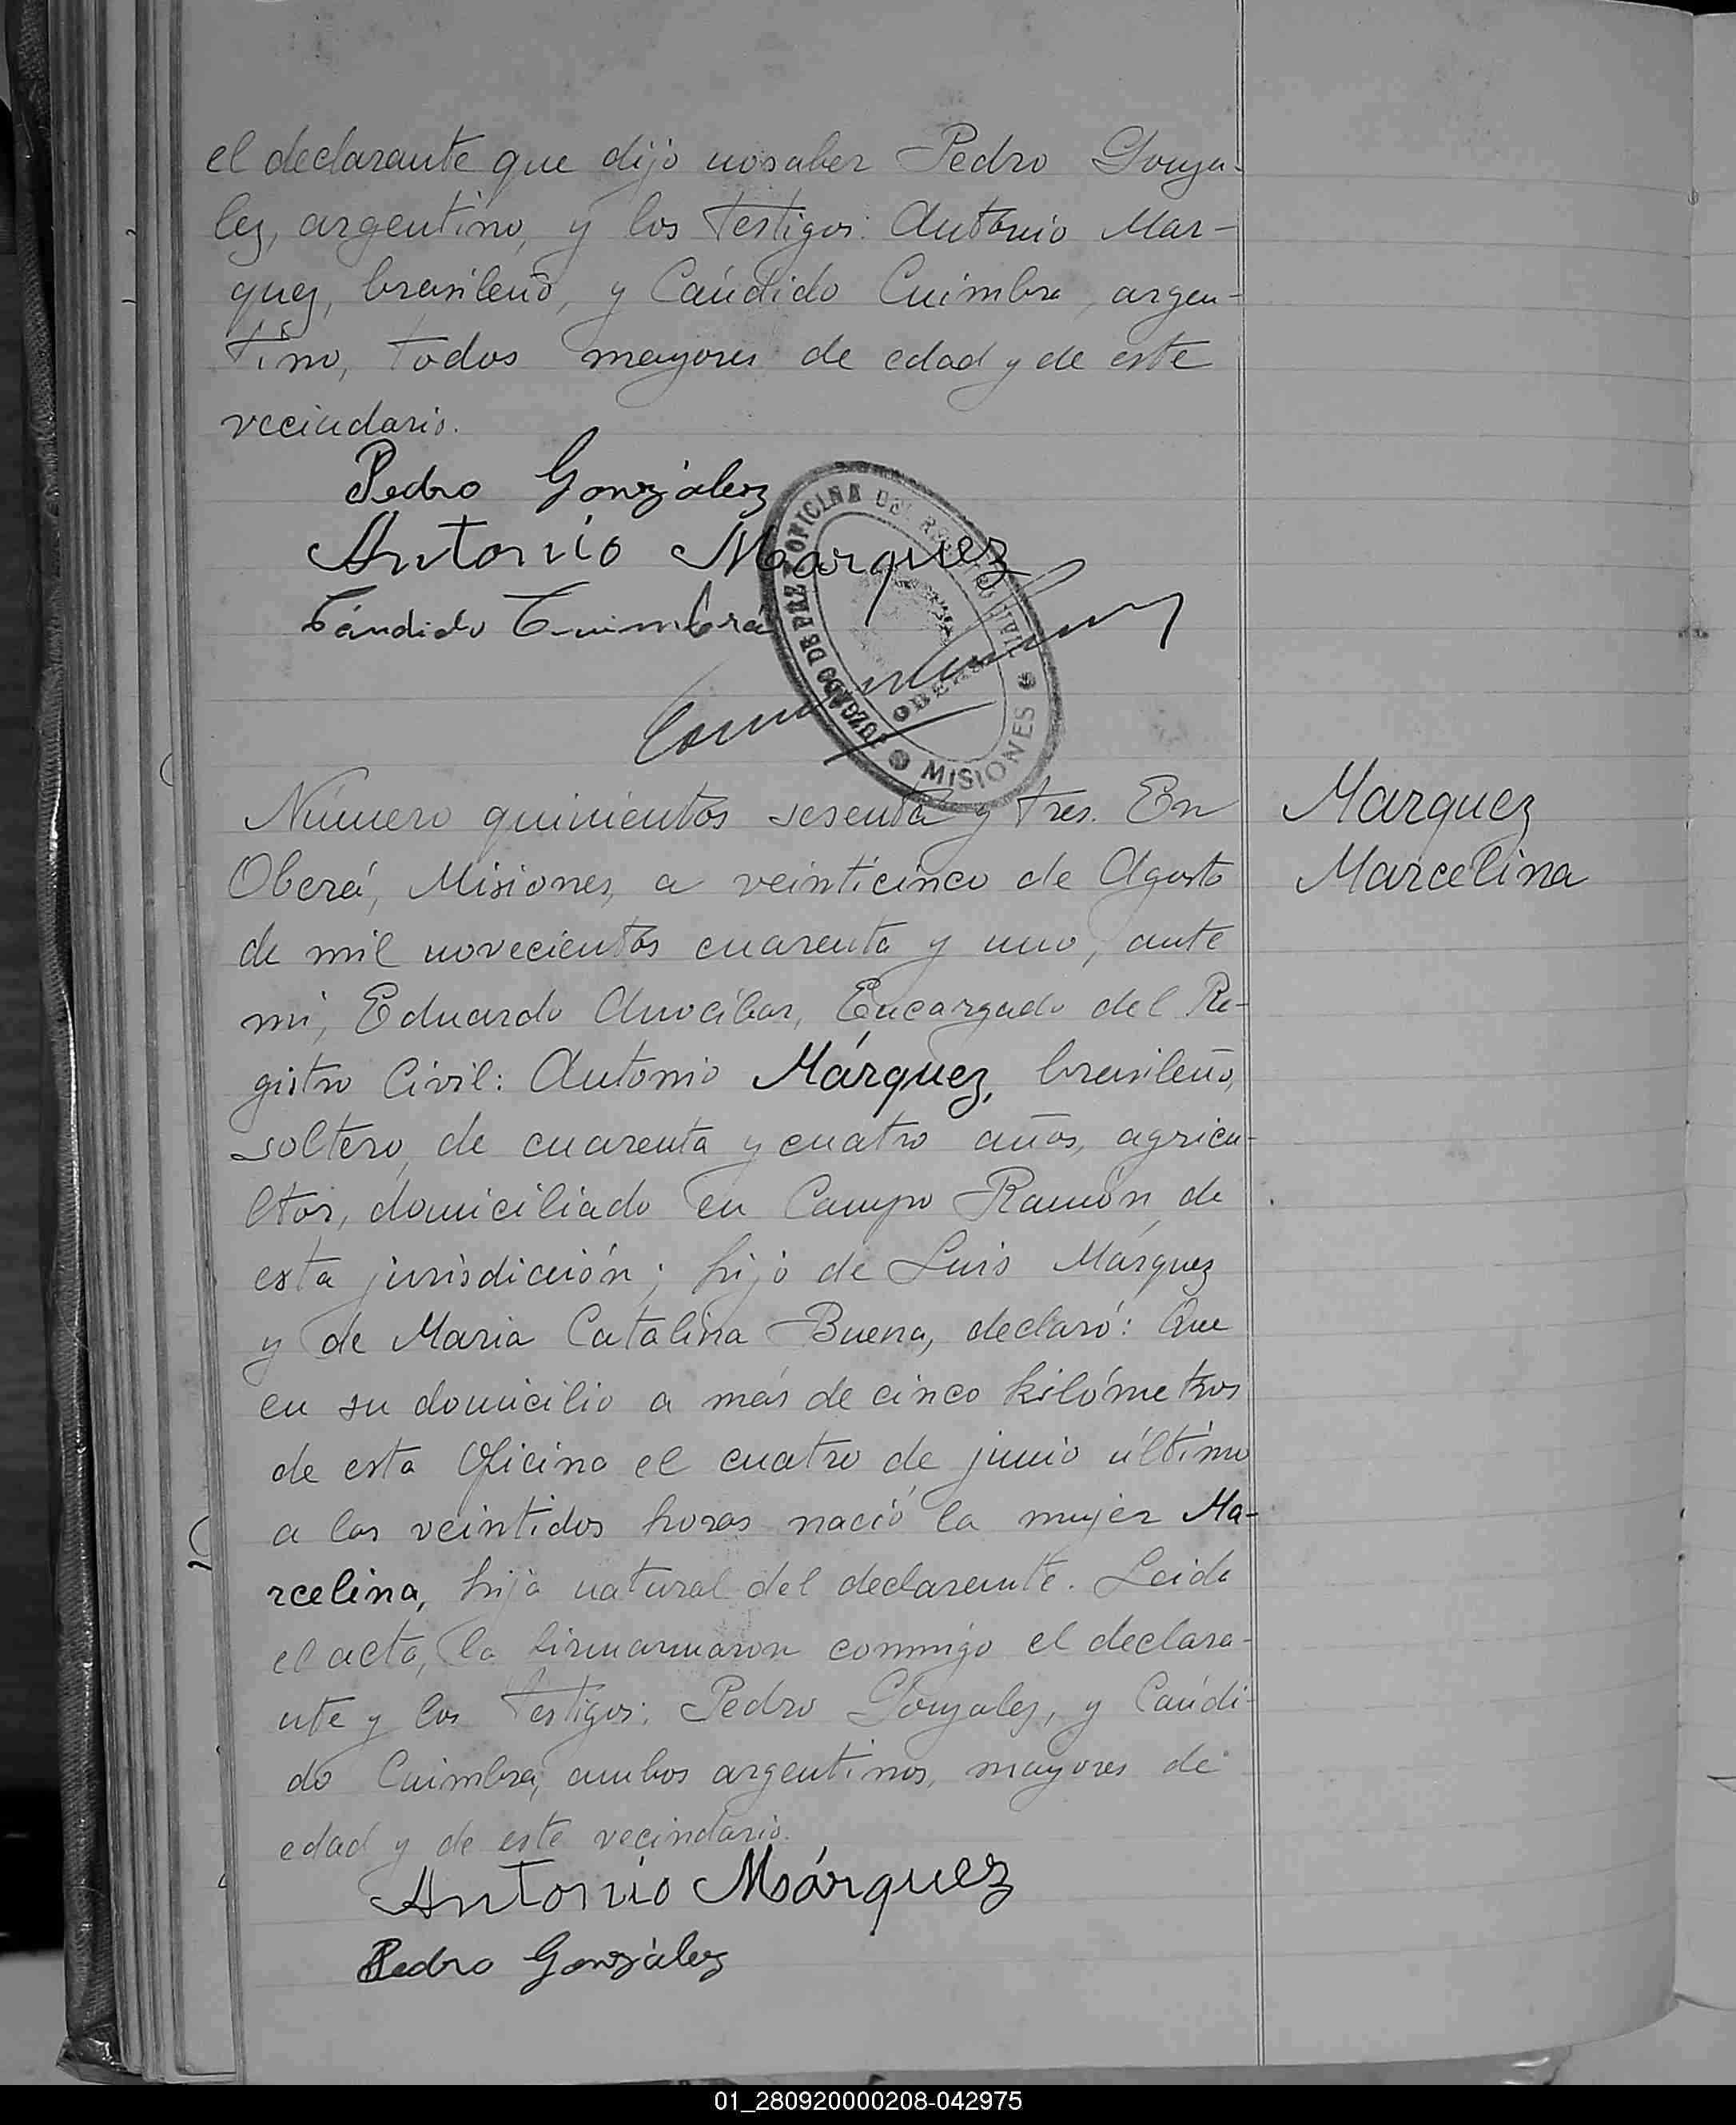 el declarante que dijo no saber Pedro Gonza-
lez, argentino, y los testigos: Antonio Mar-
quez, brasileño, y Cándido Cuimbra, argen-
tino, todos mayores de edad y de este
vecindario.
Pedro González
Antonio Márquez
Cándido Cuimbra
JUZGADO DE PAZ Y OFICINA DEL REGISTRO CIVIL
OBERÁ
MISIONES
Número quinientos sesenta y tres. En
Marquez
Oberá, Misiones, a veinticinco de Agosto
Marcelina
de mil novecientos cuarenta y uno, ante
mi, Eduardo Encargado del Re-
gistro Civil: Antonio Márquez, brasileño,
soltero, de cuarenta y cuatro años, agricu-
ltor, domiciliado en Campo Ramón, de
esta jurisdicción; hijo de Luis Márquez
y de Maria Catalina Buena, declaró: Que
en su domicilio a más de cinco kilómetros
de esta Oficina el cuatro de junio último
a las veintidos horas nació la mujer Ma-
rcelina, hija natural del declarante. Leida
el acta, la firmarmaron conmigo el declara-
nte y los testigos: Pedro Gonzalez, y Cándi-
do Cuimbra, ambos argentinos, mayores de
edad y de este vecindario.
Antonio Márquez
Pedro González
01_280920000208-042975